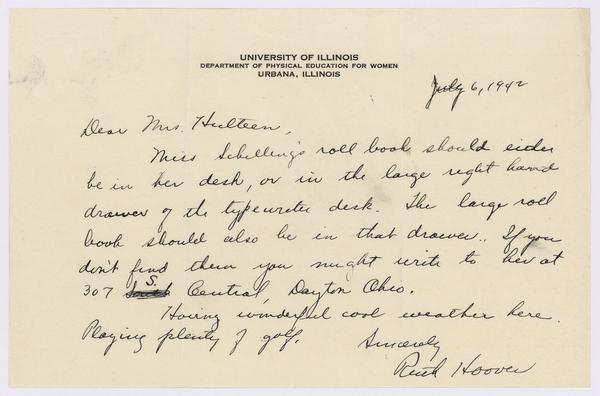 UNIVERSITY OF ILLINOIS
DEPARTMENT OF PHYSICAL EDUCATION FOR WOMEN
URBANA, ILLINOIS
July 6, 1942
Dear Mrs. Hulteen,
Miss Schelling's roll book should either
be in her desk, or in the large right hand
drawer of the typewriter desk. The large roll
book should also be in that drawer. If you
don't find them you might write to her at
307 S. Central, Dayton Ohio.
Having wonderful cool weather here.
Playing plenty of golf.
Sincerely
Ruth Hoover